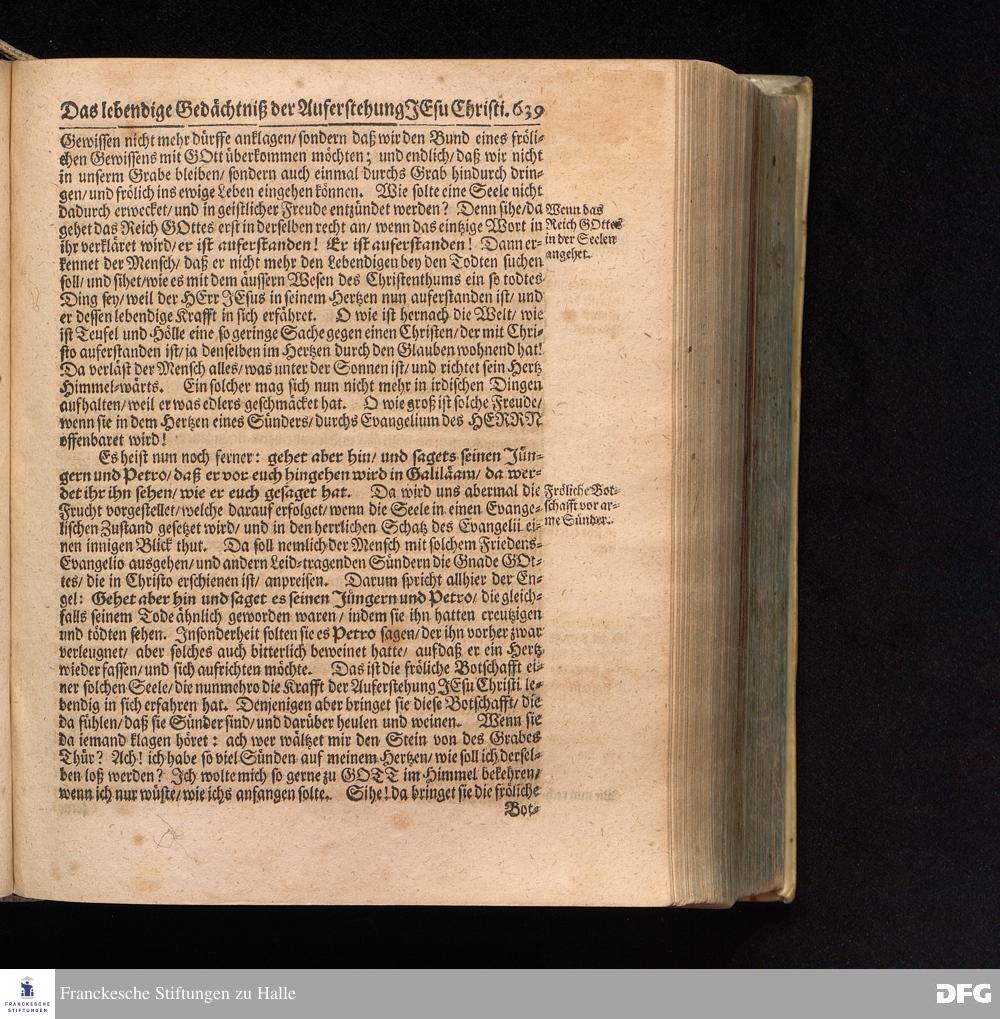 Das lebendige Gedächtniß der Auferstehung JEsu Christi. 639
Gewissen nicht mehr dürffe anklagen/ sondern daß wir den Bund eines fröli-
chen Gewissens mit GOtt überkommen möchten; und endlich/ daß wir nicht
in unserm Grabe bleiben/ sondern auch einmal durchs Grab hindurch drin-
gen/ und frölich ins ewige Leben eingehen können. Wie solte eine Seele nicht
dadurch erwecket/ und in geistlicher Freude entzündet werden? Denn sihe/ da
gehet das Reich GOttes erst in derselben recht an/ wenn das eintzige Wort in
ihr verkläret wird/ er ist auferstanden! Er ist auferstanden! Dann er-
kennet der Mensch/ daß er nicht mehr den Lebendigen bey den Todten suchen
soll/ und sihet/ wie es mit dem äussern Wesen des Christenthums ein so todtes
Ding sey/ weil der HErr JEsus in seinem Hertzen nun auferstanden ist/ und
er dessen lebendige Krafft in sich erfähret. O wie ist hernach die Welt/ wie
ist Teufel und Hölle eine so geringe Sache gegen einen Christen/ der mit Chri-
sto auferstanden ist/ ja denselben im Hertzen durch den Glauben wohnend hat!
Da verläst der Mensch alles/ was unter der Sonnen ist/ und richtet sein Hertz
Himmel-wärts. Ein solcher mag sich nun nicht mehr in irdischen Dingen
aufhalten/ weil er was edlers geschmäcket hat. O wie groß ist solche Freude/
wenn sie in dem Hertzen eines Sünders/ durchs Evangelium des HERRN
offenbaret wird!
Wenn das
Reich GOttes
in der Seelen
angehet.
Es heist nun noch ferner: gehet aber hin/ und sagets seinen Jün-
gern und Petro/ daß er vor euch hingehen wird in Galiläam/ da wer-
det ihr ihn sehen/ wie er euch gesaget hat. Da wird uns abermal die
Frucht vorgestellet/ welche darauf erfolget/ wenn die Seele in einen Evange-
lischen Zustand gesetzet wird/ und in den herrlichen Schatz des Evangelii ei-
nen innigen Blick thut. Da soll nemlich der Mensch mit solchem Friedens-
Evangelio ausgehen/ und andern Leid-tragenden Sündern die Gnade GOt-
tes/ die in Christo erschienen ist/ anpreisen. Darum spricht allhier der En-
gel: Gehet aber hin und saget es seinen Jüngern und Petro/ die gleich-
falls seinem Tode ähnlich geworden waren/ indem sie ihn hatten creutzigen
und tödten sehen. Insonderheit solten sie es Petro sagen/ der ihn vorher zwar
verleugnet/ aber solches auch bitterlich beweinet hatte/ auf daß er ein Hertz
wieder fassen/ und sich aufrichten möchte. Das ist die fröliche Botschafft ei-
ner solchen Seele/ die nunmehro die Krafft der Auferstehung JEsu Christi le-
bendig in sich erfahren hat. Denjenigen aber bringet sie diese Botschafft/ die
da fühlen/ daß sie Sünder sind/ und darüber heulen und weinen. Wenn sie
da iemand klagen höret: ach wer wältzet mir den Stein von des Grabes
Thür? Ach! ich habe so viel Sünden auf meinem Hertzen/ wie soll ich dersel-
ben loß werden? Ich wolte mich so gerne zu GOTT im Himmel bekehren/
wenn ich nur wüste/ wie ichs anfangen solte. Sihe! da bringet sie die fröliche
Bot-
Fröliche Bot-
schafft vor ar-
me Sünder.
FRANCKESCHE
STIFTUNGEN
Franckesche Stiftungen zu Halle
DFG